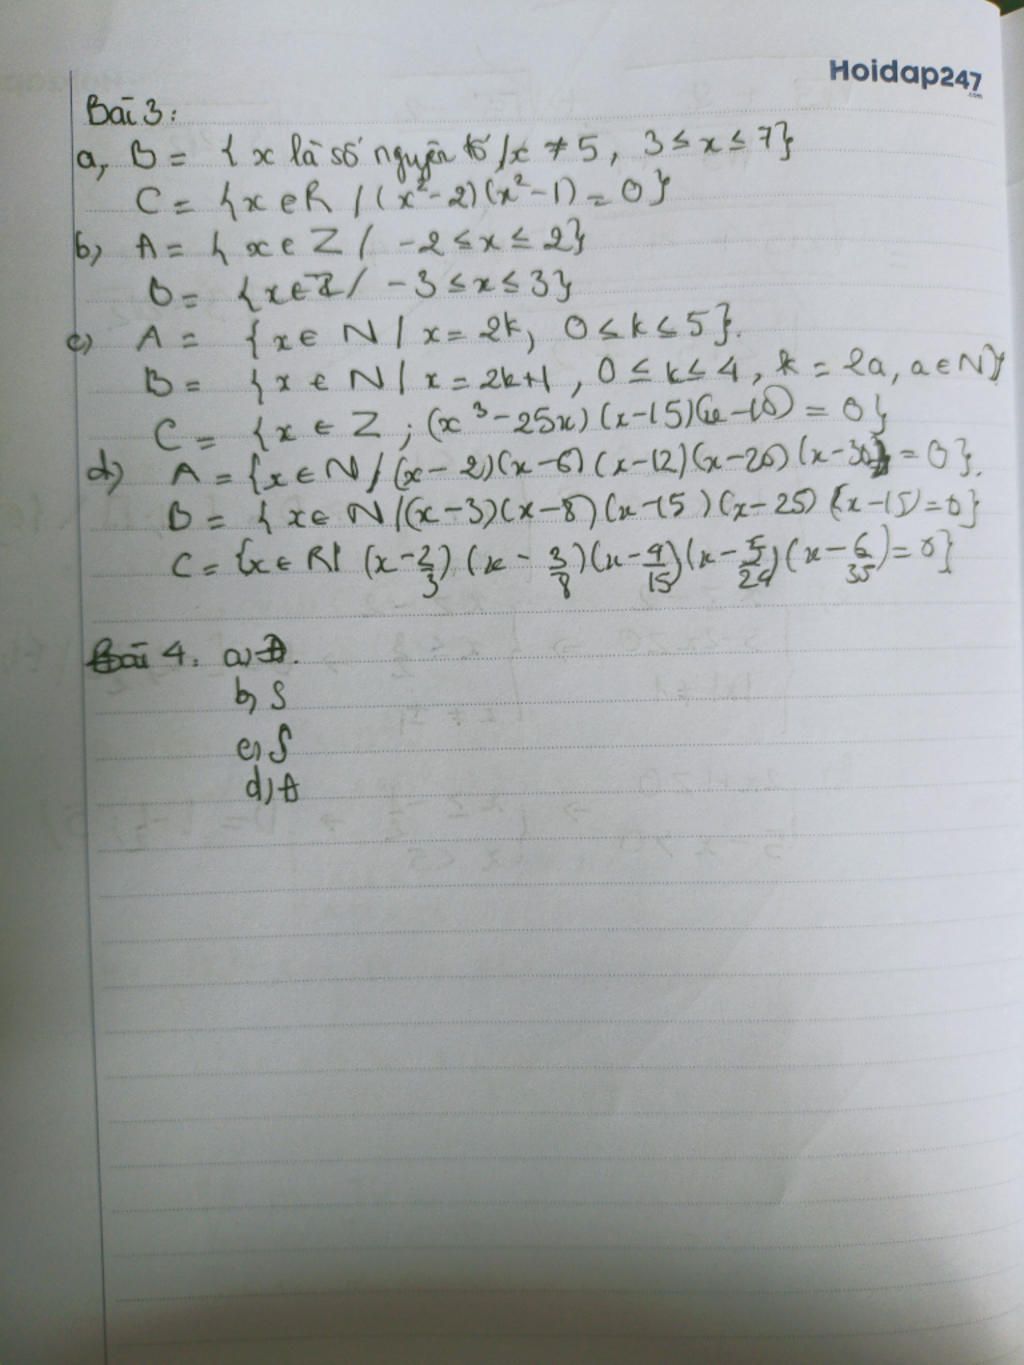 Hoidap247
.com
Bài 3:
a, B = { x là số nguyên tố / x ≠ 5, 3 ≤ x ≤ 7}
C = {x ∈ R / (x²-2)(x²-1) = 0}
b) A = { x ∈ Z / -2 ≤ x ≤ 2}
B = {x ∈ Z / -3 ≤ x ≤ 3}
c) A = {x ∈ N / x = 2k, 0 ≤ k ≤ 5}.
B = {x ∈ N / x = 2k+1, 0 ≤ k ≤ 4, k = 2a, a ∈ N}
C = {x ∈ Z ; (x³-25x)(x-15)(x-10) = 0}
d) A = {x ∈ N / (x-2)(x-6)(x-12)(x-20)(x-30) = 0}.
B = {x ∈ N / (x-3)(x-8)(x-15)(x-25)(x-15) = 0}
C = {x ∈ R | (x-2/3)(x-3/8)(x-4/15)(x-5/24)(x-6/35) = 0}
Bài 4. a) Đ.
b) S
c) S
d) Đ